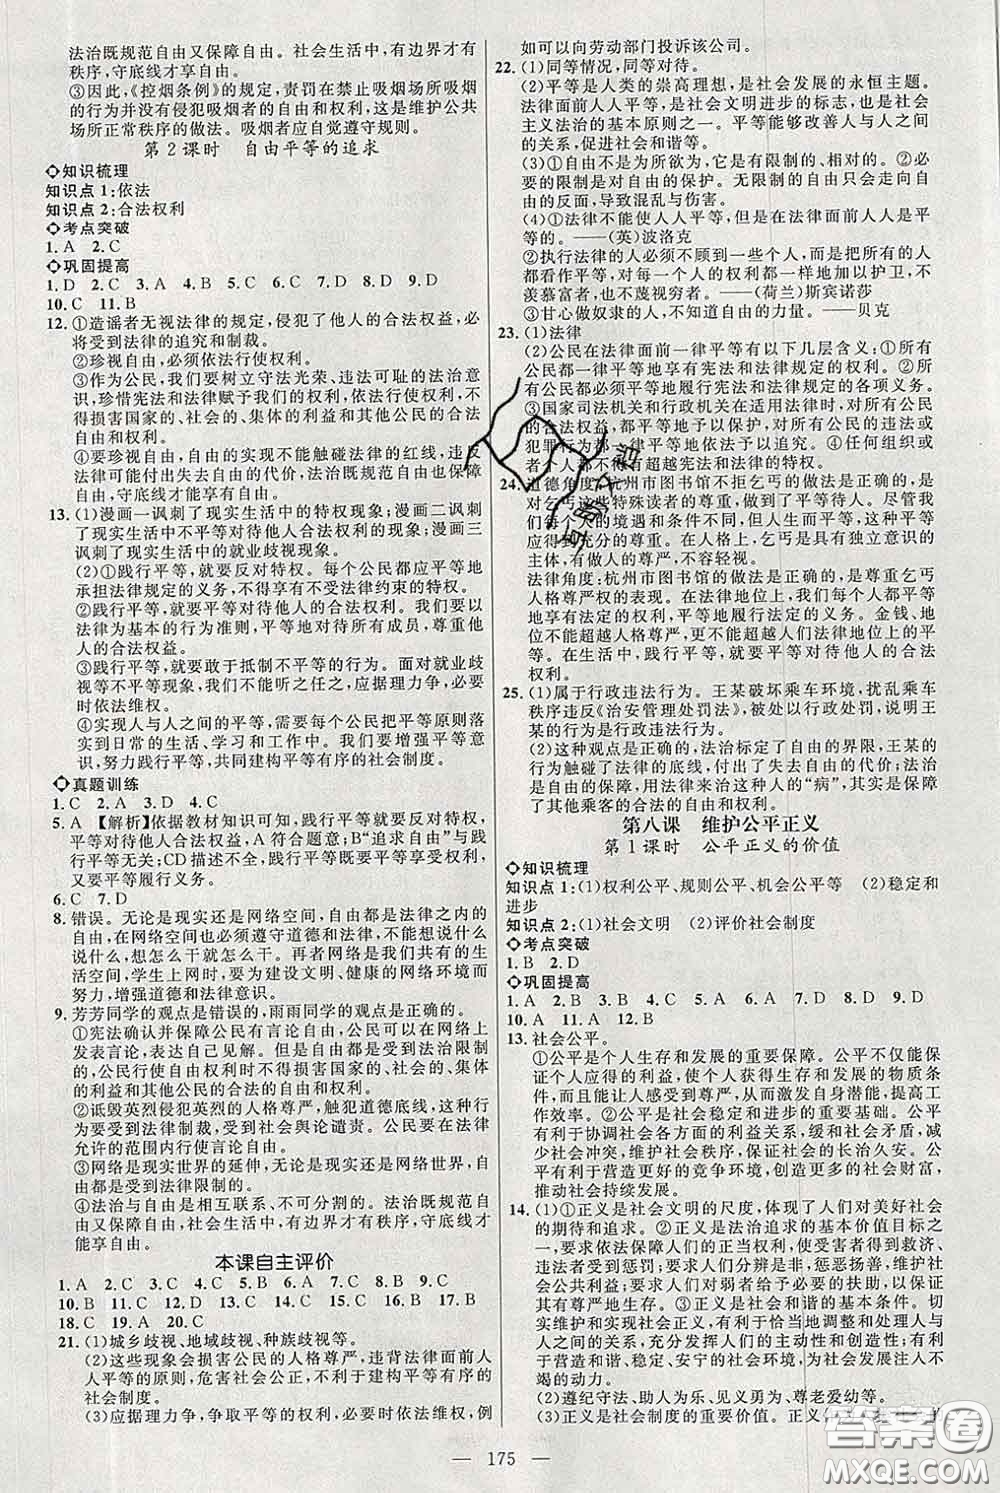 法治既规范自由又保障自由。社会生活中,有边界才有
秩序,守底线才享自由。
③因此,《控烟条例》的规定,责罚在禁止吸烟场所吸烟
的行为并没有侵犯吸烟者的自由和权利,这是维护公共
场所正常秩序的做法。吸烟者应自觉遵守规则。
第2课时 自由平等的追求
知识梳理
知识点1:依法
知识点2:合法权利
考点突破
1. A 2. C
巩固提高
1. D 2. C 3. A 4. B 5. C 6. C 7. D 8. D 9. D
10. C 11. B
12. ①造谣者无视法律的规定,侵犯了他人的合法权益,必
将受到法律的追究和制裁。
②珍视自由,必须依法行使权利。
③作为公民,我们要树立守法光荣、违法可耻的法治意
识,珍惜宪法和法律赋予我们的权利,依法行使权利,不
得损害国家的、社会的、集体的利益和其他公民的合法
自由和权利。
④要珍视自由,自由的实现不能触碰法律的红线,违反
法律可能付出失去自由的代价,法治既规范自由也保障
自由,守底线才能享有自由。
13. (1)漫画一讽刺了现实生活中的特权现象;漫画二讽刺
了现实生活中不平等对待他人合法权利的现象;漫画三
讽刺了现实生活中的就业歧视现象。
(2)①践行平等,就要反对特权。每个公民都应平等地
承担法律规定的义务,不得享有不受法律约束的特权。
②践行平等,就要平等对待他人的合法权利。我们要以
法律为基本的行为准则,平等地对待所有成员,尊重他
人的合法权益。
③践行平等,就要敢于抵制不平等的行为。面对就业歧
视等不平等现象,我们不能听之任之,应据理力争,必要
时依法维权。
④实现人与人之间的平等,需要每个公民把平等原则落
实到日常的生活、学习和工作中。我们要增强平等意
识,努力践行平等,共同建构平等有序的社会制度。
真题训练
1. C 2. A 3. D 4. D
5. A 【解析】依据教材知识可知,践行平等就要反对特权,
平等对待他人合法权益,A符合题意;B“追求自由”与践
行平等无关;CD描述不全,践行平等既要平等享受权利,
又要平等履行义务。
6. C 7. D
8. 错误。无论是现实还是网络空间,自由都是法律之内的
自由,在网络空间也必须遵守道德和法律,不能想说什么
说什么,想怎么干就怎么干。再者网络是我们共同的生
活空间,学生上网时,要为建设文明、健康的网络环境而
努力,增强道德和法律意识。
9. 芳芳同学的观点是错误的,雨雨同学的观点是正确的。
①宪法确认并保障公民有言论自由,公民可以在网络上
发表言论,表达自己见解。但是自由是受到法治限制
的,公民行使自由和权利时不得损害国家的、社会的、集
体的利益和其他公民的合法的自由和权利。
②诋毁英烈侵犯英烈的人格尊严,触犯道德底线,一定会
受到法律制裁,受到社会舆论谴责。公民要在法律
允许的范围内行使言论自由。
③网络是现实世界的延伸,无论是现实还是网络世界,自
由都是受到法律限制的。
④法治与自由是相互联系、不可分割的。法治既规范自
由又保障自由,社会生活中,有边界才有秩序,守底线才
能享自由。
本课自主评价
1. A 2. C 3. C 4. C 5. C 6. C 7. C 8. B 9. C
10. B 11. C 12. C 13. D 14. B 15. C 16. B 17. B
18. C 19. A 20. C
21. (1)城乡歧视、地域歧视、种族歧视等。
(2)这些现象会损害公民的人格尊严,违背法律面前人
人平等的原则,危害社会公正,不利于建构平等有序的
社会制度。
(3)应据理力争,争取平等的权利,必要时依法维权,例
如可以向劳动部门投诉该公司。
22. (1)同等情况,同等对待。
(2)平等是人类的崇高理想,是社会发展的永恒主题。
法律面前人人平等,是社会文明进步的标志,也是社会
主义法治的基本原则之一。平等能够改善人与人之间
的关系,促进社会和谐等。
(3)①自由不是为所欲为,它是有限制的、相对的。②必
要的限制是对自由的保护。无限制的自由只会走向自
由的反面,导致混乱与伤害。
(4)①法律不能使人人平等,但是在法律面前人人是平
等的。——(英)波洛克
②执行法律的人必须不顾到一些个人,而是把所有的人
都看作平等,对每一个人的权利都一样地加以护卫,不
羡慕富者,也不蔑视穷者。——(荷兰)斯宾诺莎
③甘心做奴隶的人,不知道自由的力量。——贝克
23. (1)法律
(2)公民在法律面前一律平等有以下几层含义:①所有
公民都平等地享有宪法和法律规定的权利。②所
有公民都必须平等地履行宪法和法律规定的各项义务。
③国家司法机关和行政机关在适用法律时,对所有公民
的合法权益,都平等地予以保护,对所有公民的违法或
犯罪行为都一律平等地依法予以追究。④任何组织或
者个人都不得有超越宪法和法律的特权。
24. 道德角度:杭州市图书馆不拒乞丐的做法是正确的,是
对乞丐这些特殊读者的尊重,做到了平等待人。尽管我
们每个人的境遇和条件不同,但人人生而平等,都应得到
充分的尊重。在人格上,乞丐也是具有独立意识的
主体,有做人的尊严,不容轻视。
法律角度:杭州市图书馆的做法是正确的,是尊重乞丐
人格尊严权的表现。在法律地位上,我们每个人都平等
享有法定的权利,平等地履行法定的义务。金钱、地位
不能超越人格尊严,更不能超越人们法律地位上的平
等。在生活中,践行平等,就要平等对待他人的合法
权利。
25. (1)属于行政违法行为。王某破坏乘车环境,扰乱乘车
秩序违反《治安管理处罚法》,被处以行政处罚,说明王
某的行为是行政违法行为。
(2)这种观点是正确的,法治标定了自由的界限,王某的
行为触碰了法律的底线,付出了失去自由的代价,这是
法治的体现,用法律来治这样的人的“病”,其实是保障
了其他乘客的合法的自由和权利。
第八课 维护公平正义
第1课时 公平正义的价值
知识梳理
知识点1:(1)权利公平、规则公平、机会公平等 (2)稳定和
进步
知识点2:(1)社会文明 (2)评价社会制度
考点突破
1. B 2. D
巩固提高
1. A 2. D 3. A 4. D 5. C 6. A 7. D 8. D 9. D
10. A 11. A 12. B
13. 社会公平。
①公平是个人生存和发展的重要保障。公平不仅能保
证个人应得的利益,使个人获得生存和发展的物质条
件,而且能让人感受到尊严,从而激发自身潜能,提高工
作效率。②公平是社会稳定和进步的重要基础。公平
有利于协调社会各方面的利益关系,缓和社会矛盾,减
少社会冲突,维护社会秩序,保证社会的长治久安。公
平有利于营造更好的竞争环境,创造更多的社会财富,
推动社会持续发展。
14. (1)①正义是社会文明的尺度,体现了人们对美好社会
的期待和追求。②正义是法治追求的基本价值目标之
一,要求依法保障人们的正当权利,使受害者得到救济、
违法者受到惩罚;要求人们分辨是非,惩恶扬善,维护社
会公共利益;要求人们对弱者给予必要的扶助,以保证
其有尊严地生存。③正义是社会和谐的基本条件。切
实维护和实现社会正义,有利于恰当地协调和处理人与
人之间的关系,充分发挥人们的主动性和创造性;有利
于营造和谐、稳定、安宁的社会环境,为社会发展注入不
竭的动力。
(2)遵纪守法、助人为乐、见义勇为、尊老爱幼等。
(3)正义是社会制度的重要价值。正义
— 175 —
答案卷
MXQE.COM